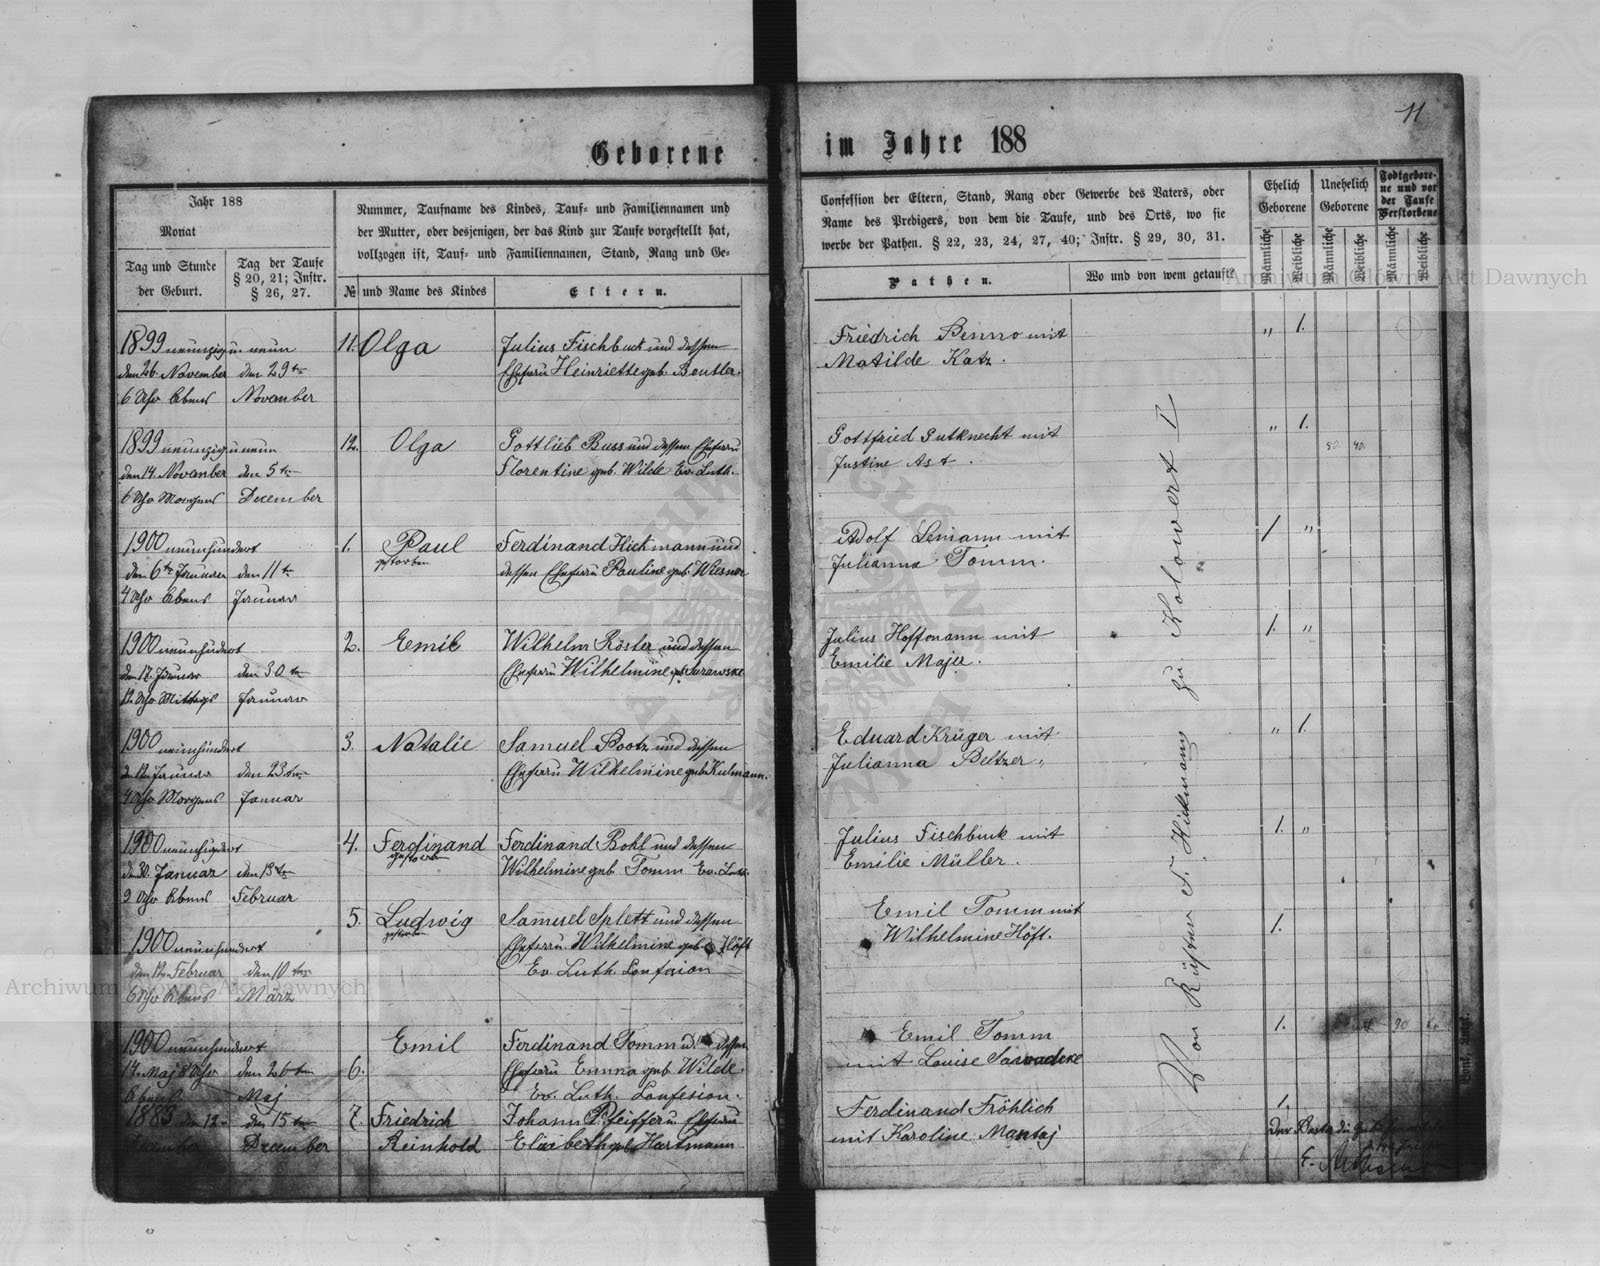 11
Geborene im Jahre 188
Jahr 188
Monat
Tag und Stunde der Geburt.
Tag der Taufe § 20, 21; Instr. § 26, 27.
Nummer, Taufname des Kindes, Tauf- und Familiennamen und
der Mutter, oder desjenigen, der das Kind zur Taufe vorgestellt hat,
vollzogen ist, Tauf- und Familiennamen, Stand, Rang und Ge-
№ und Name des Kindes
Eltern.
Confession der Eltern, Stand, Rang oder Gewerbe des Vaters, oder
Name des Predigers, von dem die Taufe, und des Orts, wo sie
werbe der Pathen. § 22, 23, 24, 27, 40; Instr. § 29, 30, 31.
Pathen.
Wo und von wem getauft?
Ehelich Geborene
Unehelich Geborene
Todtgebore-
ne und vor
der Taufe
Verstorbene
Männliche Weibliche Männliche Weibliche Männliche Weibliche
1899 neunzig u. neun
den 26. November den 29ten
6 Uhr Abens November
11. Olga
Julius Fischbuck und dessen
Ehefrau Henriette geb. Beutler.
Friedrich Benno mit
Matilde Katz.
" 1.
1899 neunzig u neun
den 14. November den 5ten
6 Uhr Morgens December
12. Olga
Gottlieb Buss und dessen Ehefrau
Florentine geb. Wilde Ev. Luth.
Gottfried Gutknecht mit
Justine Ast.
" 1.
1900 neunhundert
den 6ten Januar den 11t
4 Uhr Abens Januar
1. Paul
gestorben
Ferdinand Hickmann und
dessen Ehefrau Pauline geb. Wiesner
Adolf Lemann mit
Julianna Tomm.
1 "
1900 neunhundert
den 17. Januar den 30ten
12 Uhr Mittags Januar
2. Eemil
Wilhelm Röster und dessen
Ehefrau Wilhelmine geb.
Julius Hoffmann mit
Emilie Majer.
1. "
1900 neunhundert
d 12. Januar den 23ten
4 Uhr Morgens Januar
3. Natalie
Samuel Pootz und dessen
Ehefrau Wilhelmine geb. Kulmann.
Eduard Krüger mit
Julianna Beltzer
" 1.
1900
Januar den 13ten
9 Uhr Abens Februar
4. Ferdinand
gestorben
Ferdinand Bohl und dessen
Wilhelmine geb. Tomm Ev. Luth.
Julius Fischbuck mit
Emilie Müller.
1. "
1900 neunhundert
den 12. Februar den 10ten
6 Uhr Abens März
5. Ludwig
gestorben
Samuel Splett und dessen
Ehefrau Wilhelmine geb. Höft
Ev. Luth. Confesion
Emil Tomm mit
Wilhelmine Höft.
1.
1900 neunhundert
14. Maj 8 Uhr den 26ten
Abens Maj
6. Emil
Ferdinand Tomm u. dessen
Ehefrau Emma geb Wilde.
Ev. Luth. Confesion.
Emil Tomm
mit Louise
1.
1883 den 12. den 15ten
December December
7. Friedrich
Reinhold
Johann Pfeiffer u Ehefrau
Elisabeth geb. Hartmann
Ferdinand Fröhlich
mit Karoline Mantaj
1.
Von Küster F. Hickmann zu Kolowert I
Der Pastor
Archiwum Główne Akt Dawnych
Archiwum Główne Akt Dawnych